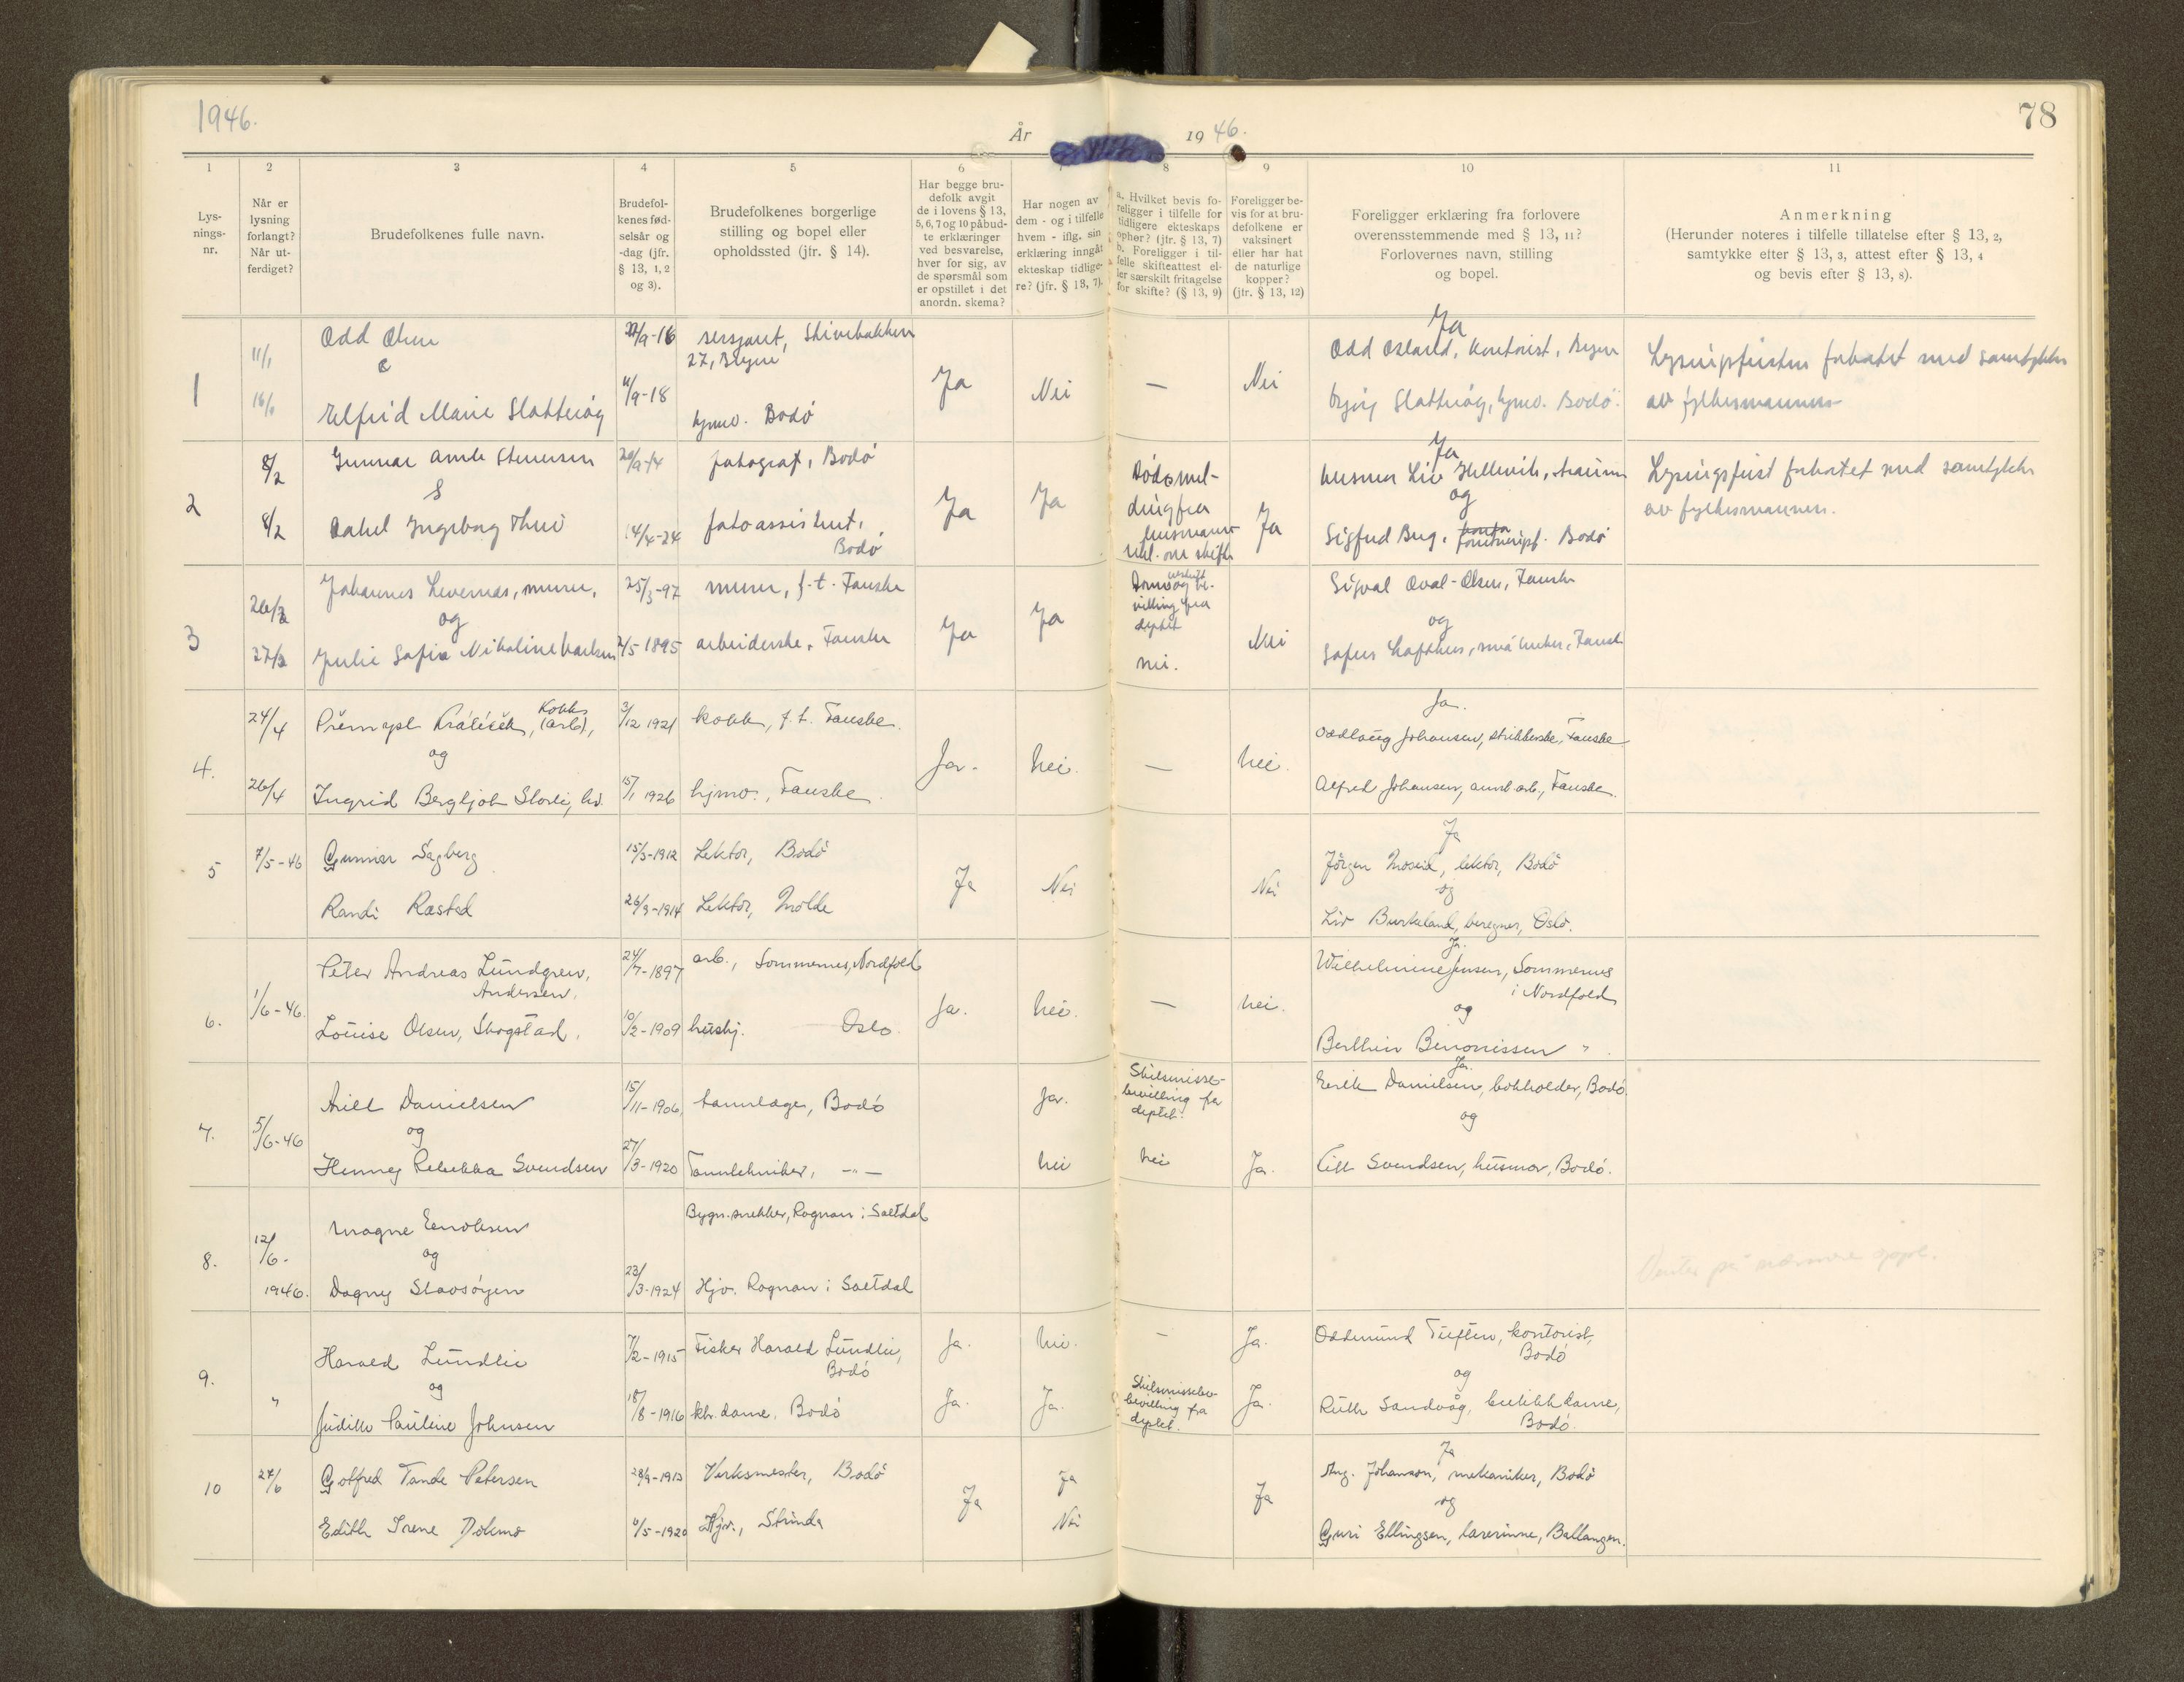 1946.
78
År 1946.
1 2 3 4 5 6 8 9 10 11
Lys-
nings-
nr.
Når er
lysning
forlangt?
Når ut-
ferdiget?
Brudefolkenes fulle navn.
Brudefol-
kenes fød-
selsår og
-dag (jfr.
§ 13, 1, 2
og 3).
Brudefolkenes borgerlige
stilling og bopel eller
opholdssted (jfr. § 14).
Har begge bru-
defolk avgit
de i lovens § 13,
5, 6, 7 og 10 påbud-
te erklæringer
ved besvarelse,
hver for sig, av
de spørsmål som
er opstillet i det
anordn. skema?
Har nogen av
dem - og i tilfelle
hvem - iflg. sin
erklæring inngått
ekteskap tidlige-
re? (jfr. § 13, 7).
a. Hvilket bevis fo-
religger i tilfelle for
tidligere ekteskaps
ophør? (jfr. § 13, 7)
b. Foreligger i til-
felle skifteattest el-
ler særskilt fritagelse
for skifte? (§ 13, 9)
Foreligger be-
vis for at bru-
defolkene er
vaksinert
eller har hat
de naturlige
kopper?
(jfr. § 13, 12)
Foreligger erklæring fra forlovere
overensstemmende med § 13, 11?
Forlovernes navn, stilling
og bopel.
Anmerkning
(Herunder noteres i tilfelle tillatelse efter § 13, 2,
samtykke efter § 13, 3, attest efter § 13, 4
og bevis efter § 13, 8).
1
11/1
Odd Olsen
sersjant,
27,
Elfrid Marie
11/9-18
hjmv. Bodø
Ja
Nei
—
Nei
Ja
Odd Osland, kontorist,
hjmv. Bodø.
forkortet med samtykke
av fylkesmannen
2
8/2
8/2
Gunnar
&
Rakel Ingeborg
14/4-24
fotograf, Bodø
fotoassistent,
Bodø
Ja
Ja
Dødsmel-
ding fra
Ja
Ja
og
Sigfred Berg, Bodø
Lysningsfrist forkortet med samtykke
av fylkesmannen.
3
Johannes Levernes, murer,
og
Julie Sofie Nikoline
25/3-97
2/5 1895
murer, f.t. Fauske
arbeiderske, Fauske
Ja
Ja
villing fra
deptet
nei.
Nei
Sigval Olsen, Fauske
og
4.
24/4
26/4
Přemysl Králíček, Kokk (arb),
og
Ingrid Bergljot Storli, hv.
3/12 1921
15/1 1926
kokk, f.t. Fauske.
hjmv., Fauske.
Ja.
Nei.
—
Nei.
Ja.
Oddlaug Johansen, strikkerske, Fauske
Alfred Johansen, anl. arb., Fauske.
5
7/5-46
Gunnar Sagberg
Randi Rasted
15/3-1912
26/9-1914
Lektor, Bodø
Lektor, Molde
Ja
Nei
Nei
Ja
Jörgen Moseid, lektor, Bodø
og
Liv Burkeland, beregner, Oslo.
6.
1/6-46.
Peter Andreas Lundgren,
Andersen.
Louise Olsen, Skogstad.
24/7-1897
10/2-1909
arb., Sommernes, Nordfold
hushj. Oslo
Ja.
Nei.
—
Nei.
Ja.
Wilhelmine Jensen, Sommernes
i Nordfold
og
Berthin Benonissen "
7.
5/6-46
Arill Danielsen
og
Henny Rebekka Svendsen
15/11-1906
27/3-1920
tannlæge, Bodø
Tanntekniker, —"—
Ja.
Nei
Skilsmisse-
bevilling fra
deptet.
Nei
Ja.
Ja.
Erik Danielsen, bokholder, Bodø.
og
Lill Svendsen, husmor, Bodø.
8.
12/6-
1946.
Magne Enoksen
og
Dagny Stavsøyen
23/3-1924
Bygn.snekker, Rognan i Saltdal
Hjv. Rognan i Saltdal
Venter på nærmere oppl.
9.
"
Harald Lundlie
og
Judith Pauline Johnsen
7/2-1915
18/8-1916
Fisker Harald Lundlie,
Bodø
ktr. dame, Bodø
Ja.
Ja.
Nei.
Ja.
—
Skilsmisse-
bevilling fra
deptet.
Ja.
Ja.
Oddmund Tuften, kontorist,
Bodø
og
Ruth Sandvåg, butikkdame,
Bodø.
10
24/6
Gotfred Tande Petersen
Edith Irene Dokmo
28/9-1913
6/5-1920
Verksmester, Bodø
Hjv., Strinda
Ja
Ja
Nei
Ja
Ja
Aug. Johanson, mekaniker, Bodø
og
Guri Ellingsen, lærerinne, Ballangen.